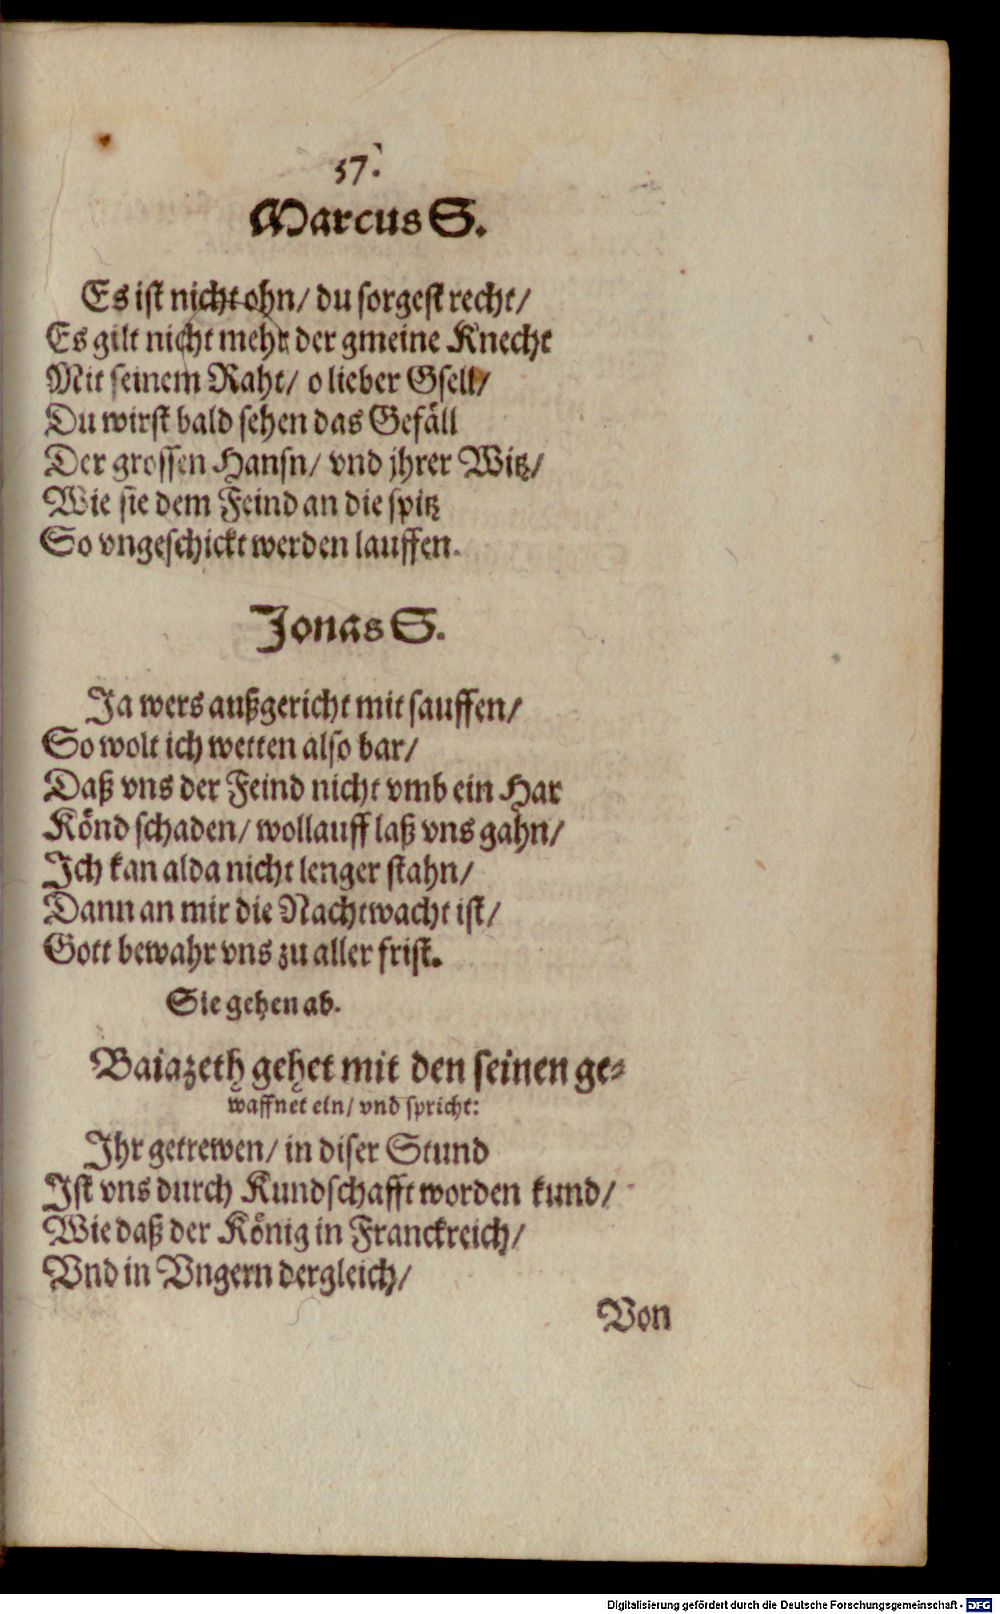 37.
Marcus S.
Es ist nicht ohn/ du sorgest recht/
Es gilt nicht mehr der gmeine Knecht
Mit seinem Raht/ o lieber Gsell/
Du wirst bald sehen das Gefäll
Der grossen Hansn/ vnd jhrer Witz/
Wie sie dem Feind an die spitz
So vngeschickt werden lauffen.
Jonas S.
Ja wers außgericht mit sauffen/
So wolt ich wetten also bar/
Daß vns der Feind nicht vmb ein Har
Könd schaden/ wollauff laß vns gahn/
Ich kan alda nicht lenger stahn/
Dann an mir die Nachtwacht ist/
Gott bewahr vns zu aller frist.
Sie gehen ab.
Baiazeth gehet mit den seinen ge-
waffnet ein/ vnd spricht:
Ihr getrewen/ in diser Stund
Ist vns durch Kundschafft worden kund/
Wie daß der König in Franckreich/
Vnd in Vngern dergleich/
Von
Digitalisierung gefördert durch die Deutsche Forschungsgemeinschaft - DFG